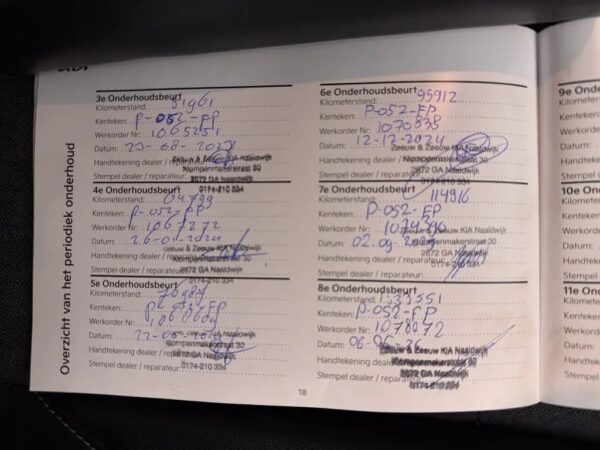 Overzicht van het periodiek onderhoud
3e Onderhoudsbeurt
Kilometerstand: 51961
Kenteken: P-052-FP
Werkorder Nr: 1065251
Datum:
Handtekening dealer / reparateur: Zeeuw & Zeeuw KIA Naaldwijk
Klompenmakerstraat 30
2672 GA Naaldwijk
Stempel dealer / reparateur: 0174-210 334
4e Onderhoudsbeurt
Kilometerstand: 64799
Kenteken: P-052-FP
Werkorder Nr: 1067272
Datum: 26-01-2024
Zeeuw & Zeeuw KIA Naaldwijk
Handtekening dealer / reparateur: Klompenmakerstraat 30
2672 GA Naaldwijk
Stempel dealer / reparateur: 0174-210 334
5e Onderhoudsbeurt
Kilometerstand:
Kenteken: P-052-FP
Werkorder Nr:
Datum:
KIA Naaldwijk
Handtekening dealer / reparateur: Klompenmakerstraat 30
2672 GA Naaldwijk
Stempel dealer / reparateur: 0174-210 334
18
6e Onderhoudsbeurt
Kilometerstand: 95912
Kenteken: P-052-FP
Werkorder Nr: 1070838
Datum: 12-12-2024
Zeeuw & Zeeuw KIA Naaldwijk
Handtekening dealer / reparateur: Klompenmakerstraat 30
2672 GA Naaldwijk
Stempel dealer / reparateur: 0174-210 334
7e Onderhoudsbeurt
Kilometerstand: 114916
Kenteken: P-052-FP
Werkorder Nr:
Zeeuw & Zeeuw KIA Naaldwijk
Datum: 02-09-2025
Klompenmakerstraat 30
Handtekening dealer / reparateur: 2672 GA Naaldwijk
Stempel dealer / reparateur: 0174-210 334
8e Onderhoudsbeurt
Kilometerstand: 133551
Kenteken: P-052-FP
Werkorder Nr: 1078072
Datum:
Zeeuw & Zeeuw KIA Naaldwijk
Handtekening dealer / reparateur: Klompenmakerstraat 30
2672 GA Naaldwijk
Stempel dealer / reparateur: 0174-210 334
9e Ond
Kilometer
Kenteken
Werkorde
Datum:
Handteke
Stempel d
10e On
Kilometer
Kenteken
Werkord
Datum:
Handtek
Stempel
11e On
Kilomet
Kenteke
Werkor
Datum
Handte
Stemp